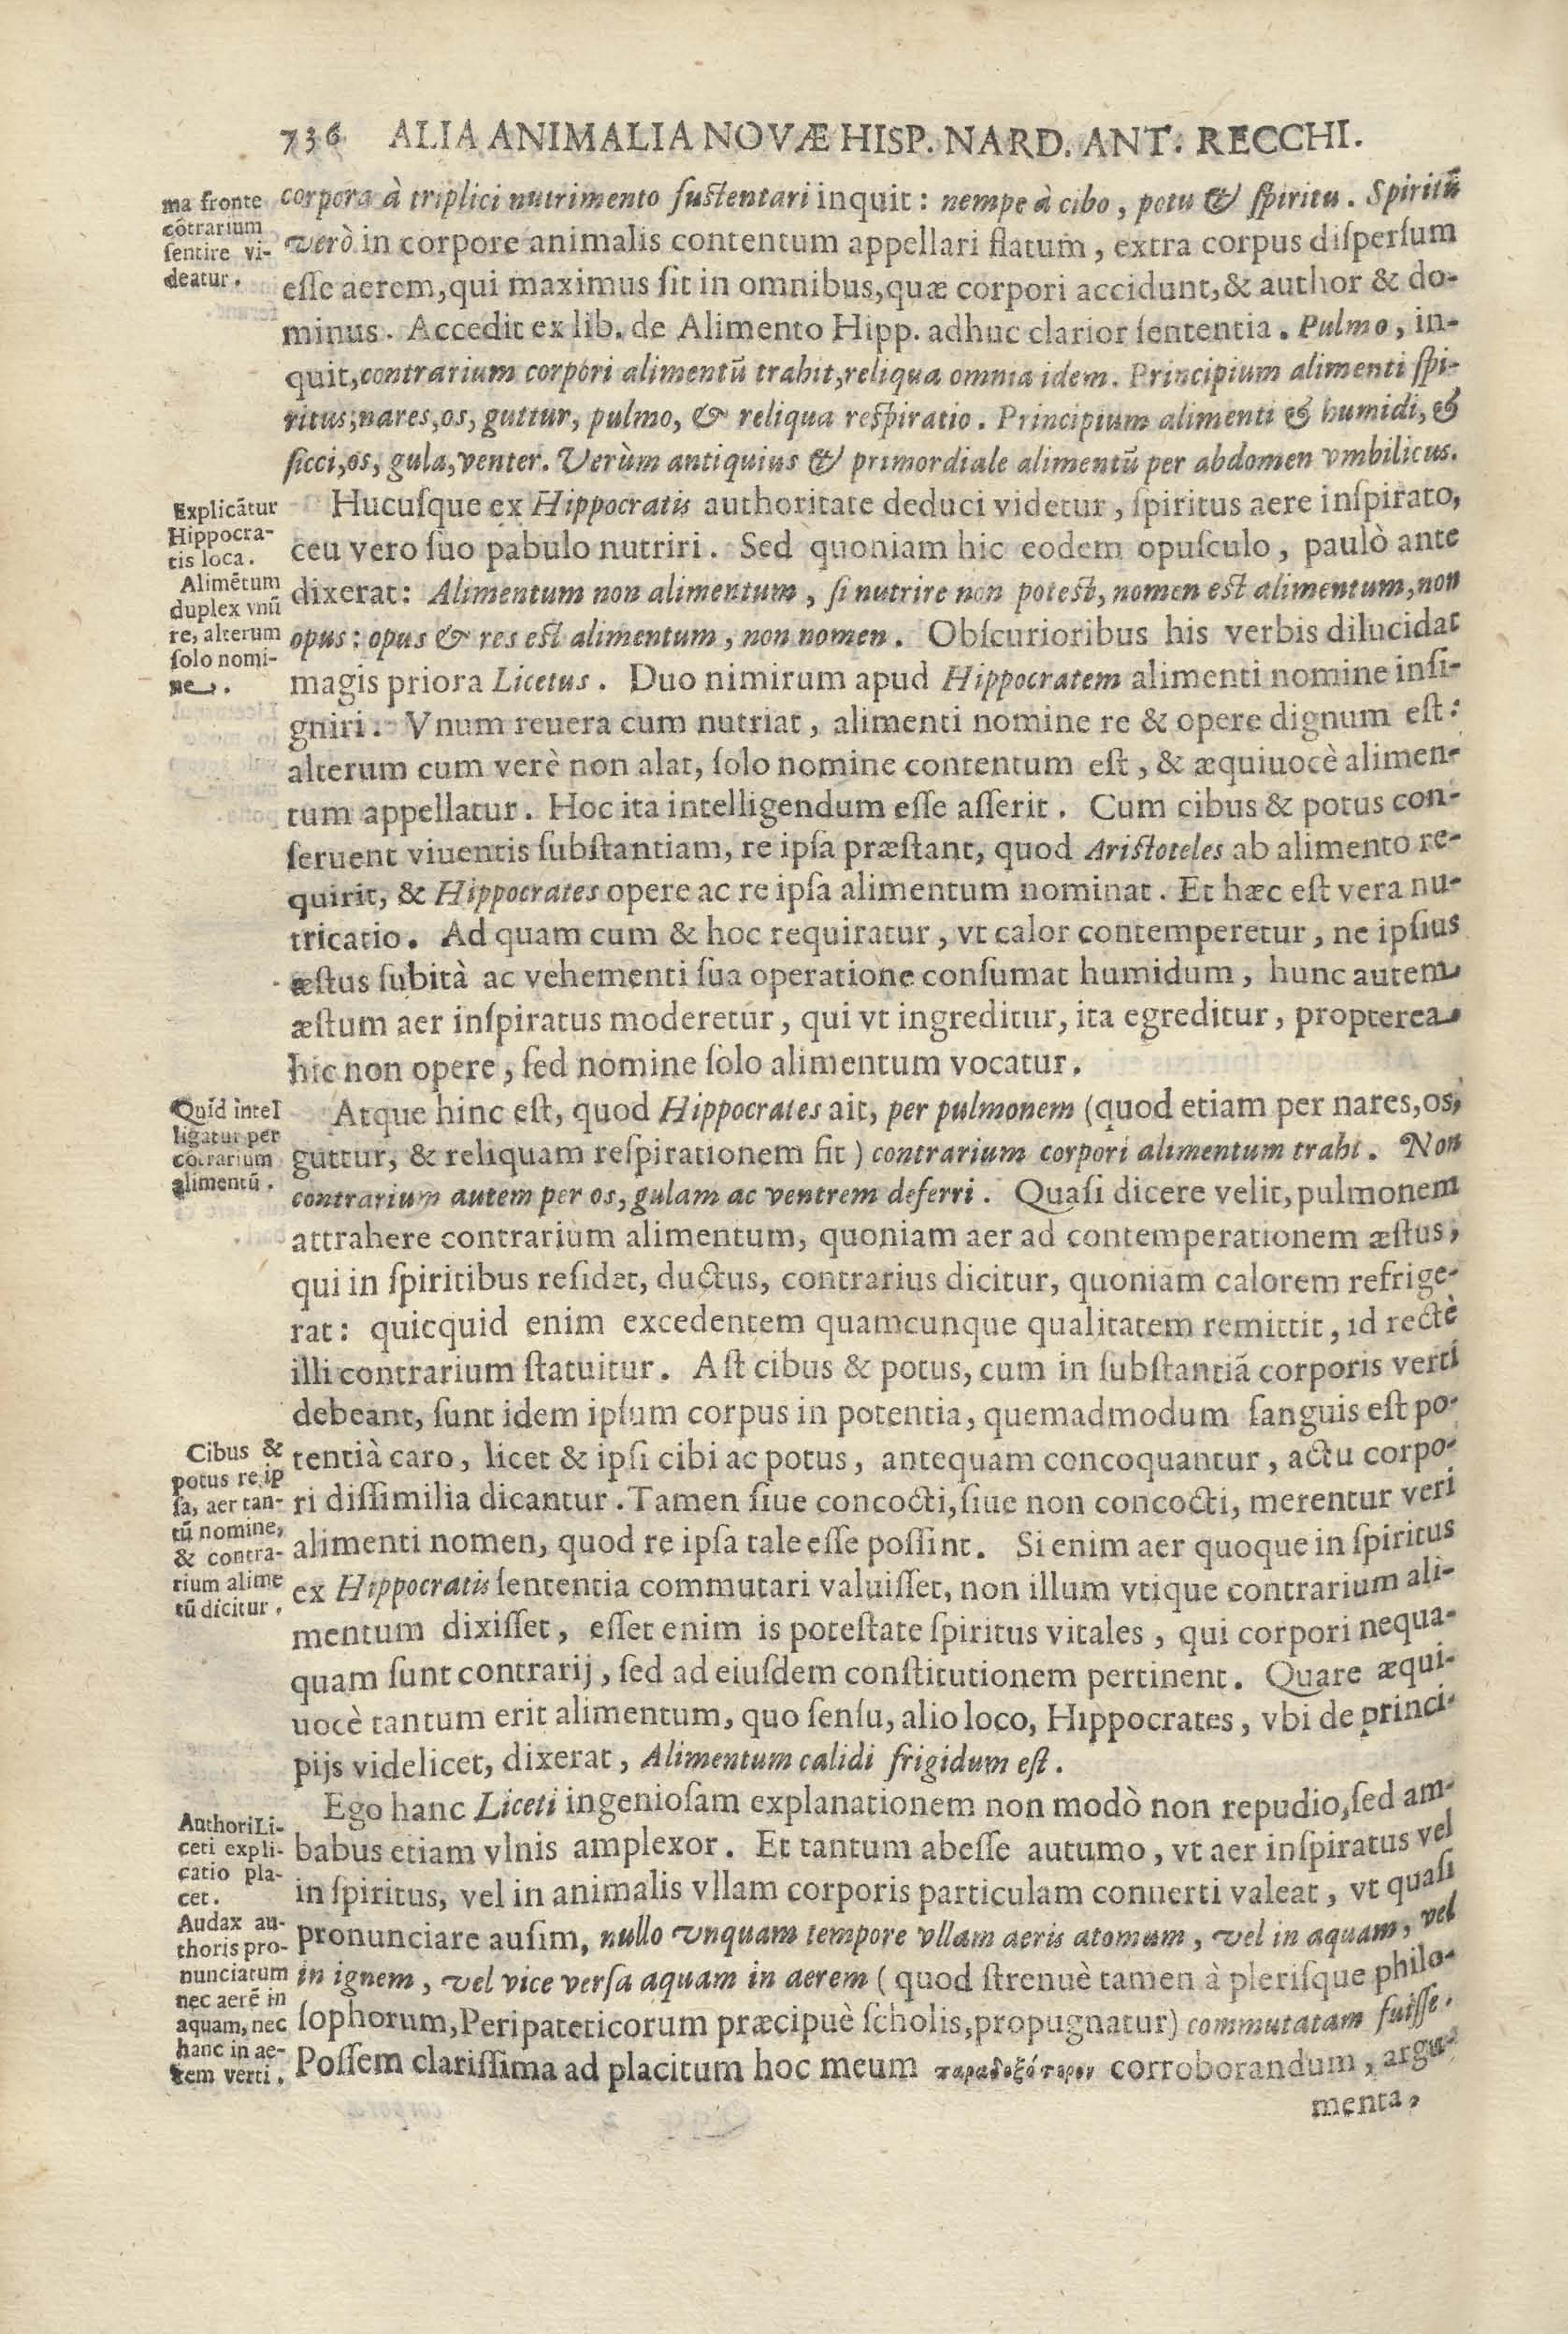 736 ALIA ANIMALIA NOVÆ HISP. NARD. ANT. RECCHI.
ma fronte
cõtrarium
ſentire vi-
deatur.
corpora à triplici nutrimento ſuſtentari inquit: nempe à cibo, potu & ſpiritu. Spiritũ
verò in corpore animalis contentum appellari flatum, extra corpus diſperſum
eſſe aerem, qui maximus ſit in omnibus, quæ corpori accidunt, & author & do-
minus. Accedit ex lib. de Alimento Hipp. adhuc clarior ſententia. Pulmo, in-
quit, contrarium corpori alimentũ trahit, reliqua omnia idem. Principium alimenti ſpi-
ritus, nares, os, guttur, pulmo, & reliqua reſpiratio. Principium alimenti & humidi, &
ſicci, os, gula, venter. Verùm antiquius & primordiale alimentũ per abdomen vmbilicus.
Explicãtur
Hippocra-
tis loca.
Alimẽtum
duplex vnũ
re, alterum
ſolo nomi-
ne.
Hucuſque ex Hippocratis authoritate deduci videtur, ſpiritus aere inſpirato,
ceu vero ſuo pabulo nutriri. Sed quoniam hic eodem opuſculo, paulò ante
dixerat: Alimentum non alimentum, ſi nutrire non poteſt, nomen eſt alimentum, non
opus: opus & res eſt alimentum, non nomen. Obſcurioribus his verbis dilucidat
magis priora Licetus. Duo nimirum apud Hippocratem alimenti nomine inſi-
gniri. Vnum reuera cum nutriat, alimenti nomine re & opere dignum eſt:
alterum cum verè non alat, ſolo nomine contentum eſt, & æquiuocè alimen-
tum appellatur. Hoc ita intelligendum eſſe aſſerit. Cum cibus & potus con-
ſeruent viuentis ſubſtantiam, re ipſa præſtant, quod Ariſtoteles ab alimento re-
quirit, & Hippocrates opere ac re ipſa alimentum nominat. Et hæc eſt vera nu-
tricatio. Ad quam cum & hoc requiratur, vt calor contemperetur, ne ipſius
æſtus ſubità ac vehementi ſua operatione conſumat humidum, hunc autem
æſtum aer inſpiratus moderetur, qui vt ingreditur, ita egreditur, propterea
hic non opere, ſed nomine ſolo alimentum vocatur.
Quid intel
ligatur per
cõtrarium
alimentũ.
Atque hinc eſt, quod Hippocrates ait, per pulmonem (quod etiam per nares, os,
guttur, & reliquam reſpirationem fit) contrarium corpori alimentum trahi. Non
contrarium autem per os, gulam ac ventrem deferri. Quaſi dicere velit, pulmonem
attrahere contrarium alimentum, quoniam aer ad contemperationem æſtus,
qui in ſpiritibus reſidet, ductus, contrarius dicitur, quoniam calorem refrige-
rat: quicquid enim excedentem quamcunque qualitatem remittit, id rectè
illi contrarium ſtatuitur. Aſt cibus & potus, cum in ſubſtantiã corporis verti
debeant, ſunt idem ipſum corpus in potentia, quemadmodum ſanguis eſt po-
Cibus &
potus re ip
ſa, aer tan-
tũ nomine,
& contra-
rium alime
tũ dicitur.
tentià caro, licet & ipſi cibi ac potus, antequam concoquantur, actu corpo-
ri diſſimilia dicantur. Tamen ſiue concocti, ſiue non concocti, merentur veri
alimenti nomen, quod re ipſa tale eſſe poſſint. Si enim aer quoque in ſpiritus
ex Hippocratis ſententia commutari valuiſſet, non illum vtique contrarium ali-
mentum dixiſſet, eſſet enim is poteſtate ſpiritus vitales, qui corpori nequa-
quam ſunt contrarij, ſed ad eiuſdem conſtitutionem pertinent. Quare æqui-
uocè tantum erit alimentum, quo ſenſu, alio loco, Hippocrates, vbi de princi-
pijs videlicet, dixerat, Alimentum calidi frigidum eſt.
Authori Li-
ceti expli-
catio pla-
cet.
Audax au-
thoris pro-
nunciatum
nec aerẽ in
aquam, nec
hanc in ae-
rem verti.
Ego hanc Liceti ingenioſam explanationem non modò non repudio, ſed am-
babus etiam vlnis amplexor. Et tantum abeſſe autumo, vt aer inſpiratus vel
in ſpiritus, vel in animalis vllam corporis particulam conuerti valeat, vt quaſi
pronunciare auſim, nullo vnquam tempore vllam aeris atomum, vel in aquam, vel
in ignem, vel vice verſa aquam in aerem (quod ſtrenuè tamen à pleriſque philo-
ſophorum, Peripateticorum præcipuè ſcholis, propugnatur) commutatam fuiſſe.
Poſſem clariſſima ad placitum hoc meum παραδοξότερον corroborandum, argu-
menta,